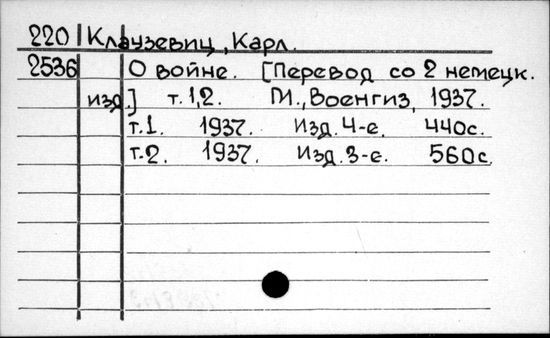 220 Клаузевиц, Карл.
2536 О войне. [Перевод со 2 немецк.
изд.] т.1,2. М., Военгиз, 1937.
т.1. 1937. Изд. 4-е. 440с.
т.2. 1937. Изд. 3-е. 560с.